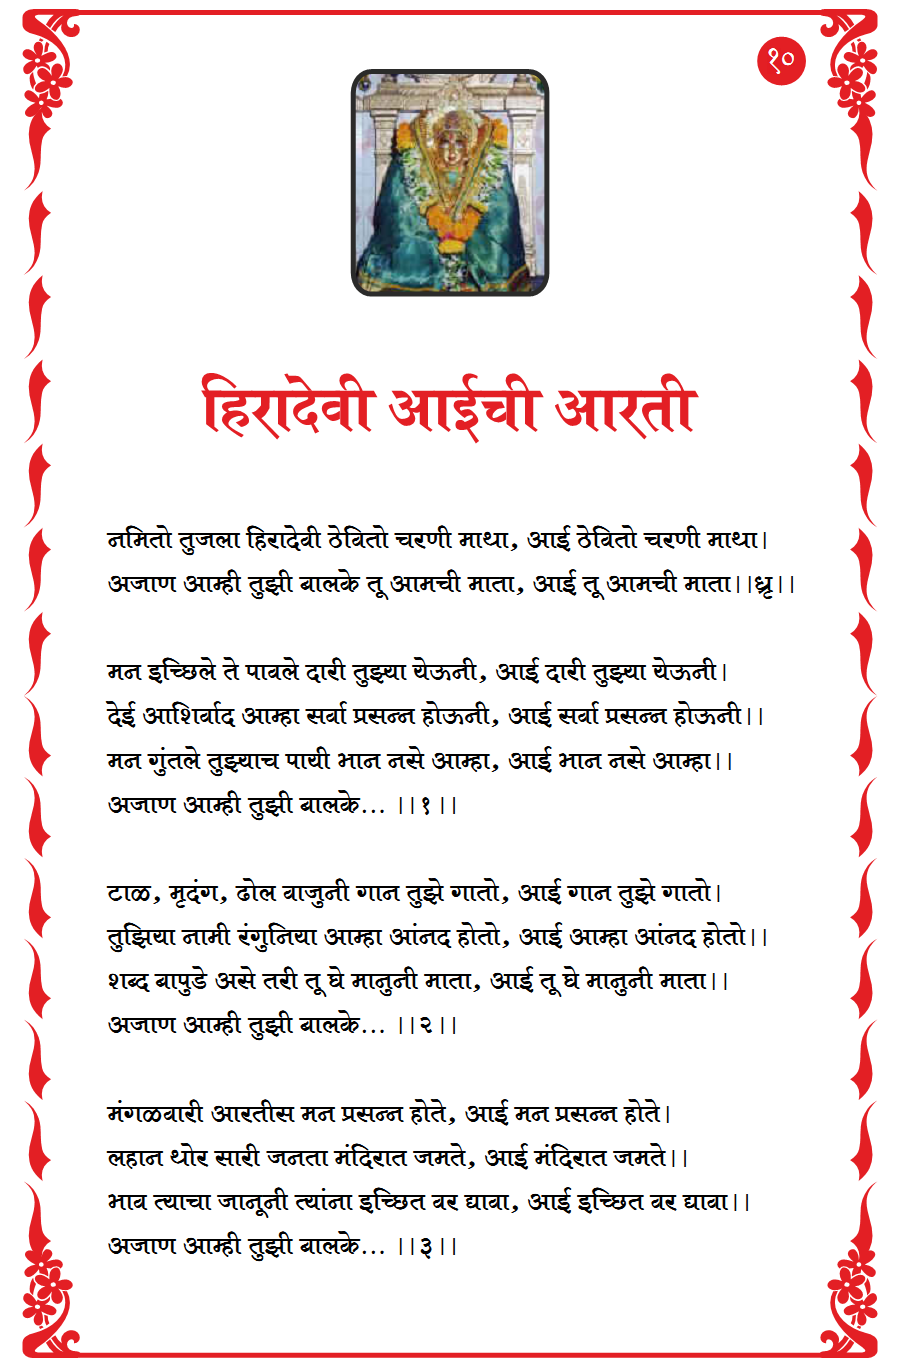 १०
हिरादेवी आईची आरती
नमितो तुजला हिरादेवी ठेवितो चरणी माथा, आई ठेवितो चरणी माथा।
अजाण आम्ही तुझी बालके तू आमची माता, आई तू आमची माता।।ध्रृ।।
मन इच्छिले ते पावले दारी तुझ्या येऊनी, आई दारी तुझ्या येऊनी।
देई आशिर्वाद आम्हा सर्वा प्रसन्न होऊनी, आई सर्वा प्रसन्न होऊनी।।
मन गुंतले तुझ्याच पायी भान नसे आम्हा, आई भान नसे आम्हा।।
अजाण आम्ही तुझी बालके... ।।१।।
टाळ, मृदंग, ढोल वाजुनी गान तुझे गातो, आई गान तुझे गातो।
तुझिया नामी रंगुनिया आम्हा आंनद होतो, आई आम्हा आंनद होतो।।
शब्द बापुडे असे तरी तू घे मानुनी माता, आई तू घे मानुनी माता।।
अजाण आम्ही तुझी बालके... ।।२।।
मंगळवारी आरतीस मन प्रसन्न होते, आई मन प्रसन्न होते।
लहान थोर सारी जनता मंदिरात जमते, आई मंदिरात जमते।।
भाव त्याचा जानूनी त्यांना इच्छित वर द्यावा, आई इच्छित वर द्यावा।।
अजाण आम्ही तुझी बालके... ।।३।।